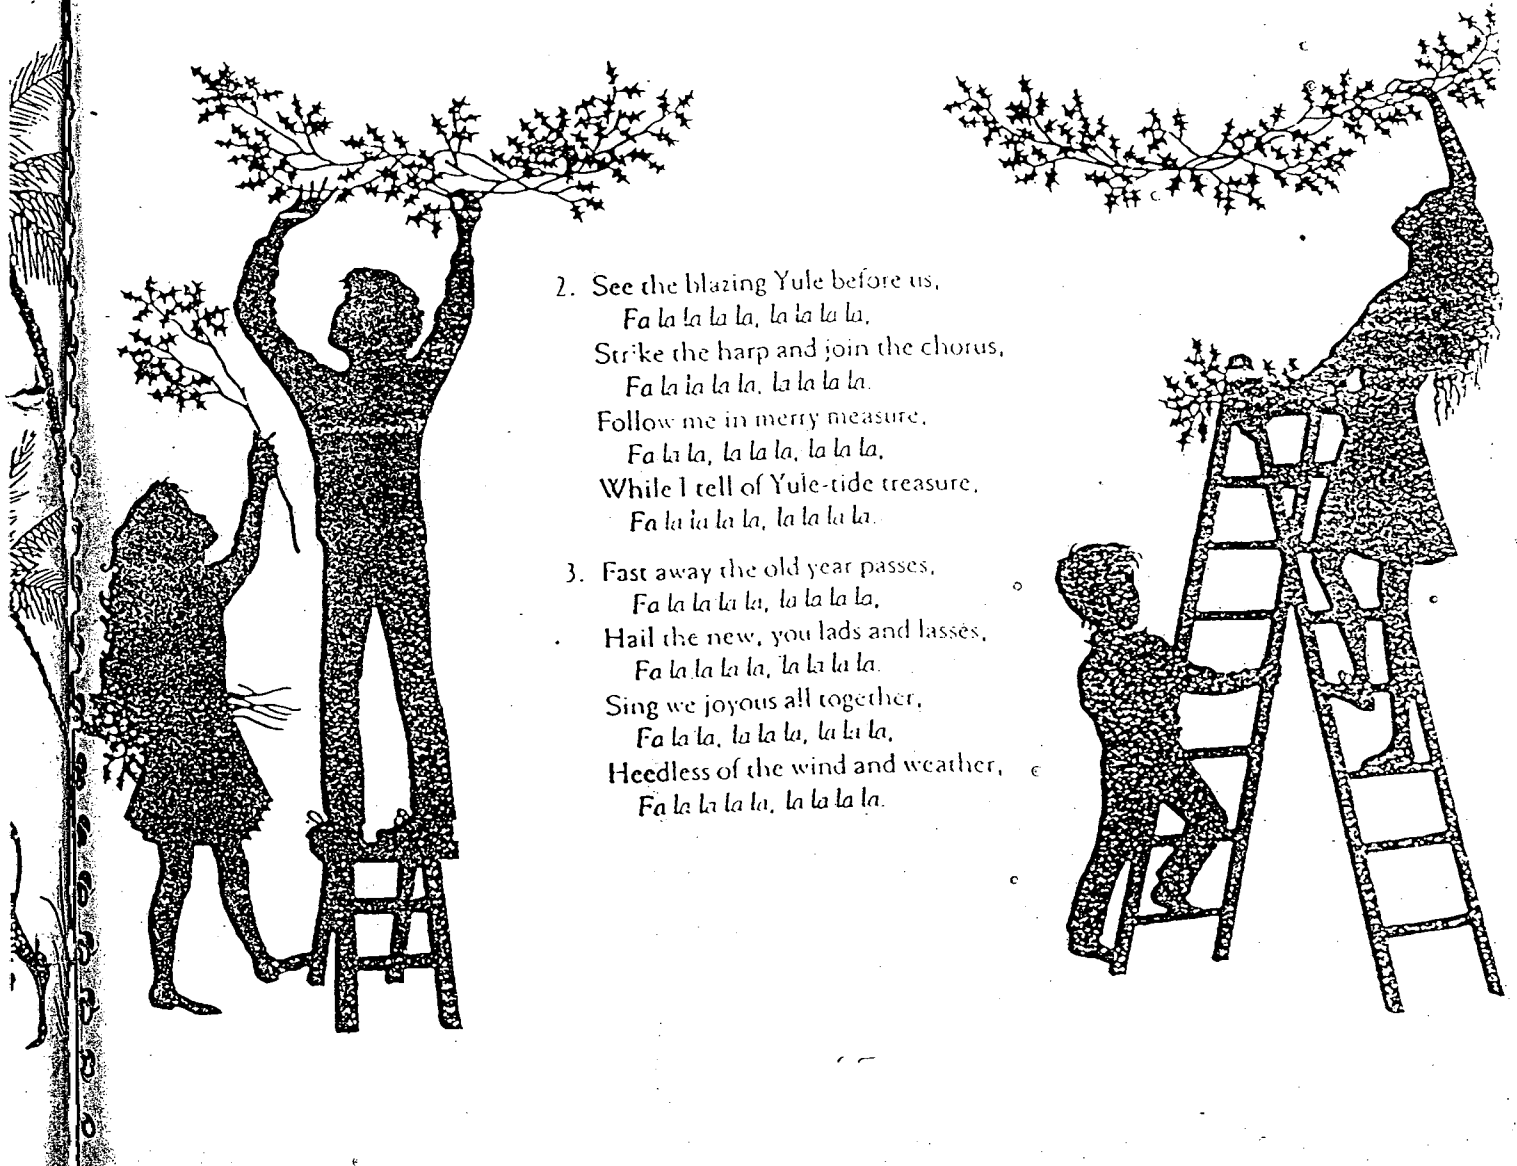 2. See the blazing Yule before us,
Fa la la la la, la la la la,
Strike the harp and join the chorus,
Fa la la la la, la la la la.
Follow me in merry measure,
Fa la la, la la la, la la la,
While I tell of Yule-tide treasure,
Fa la la la la, la la la la.
3. Fast away the old year passes,
Fa la la la la, la la la la,
Hail the new, you lads and lasses,
Fa la la la la, la la la la.
Sing we joyous all together,
Fa la la, la la la, la la la,
Heedless of the wind and weather,
Fa la la la la, la la la la.